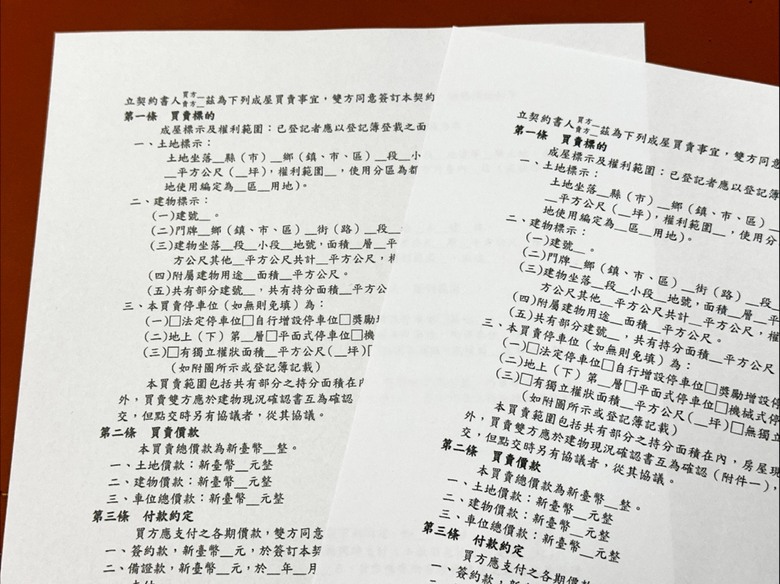 立契約書人買方__賣方__茲為下列成屋買賣事宜，雙方同意簽訂本契約
第一條　買賣標的
成屋標示及權利範圍：已登記者應以登記簿登載之面
一、土地標示：
土地坐落__縣（市）__鄉（鎮、市、區）__段__小
__平方公尺（__坪），權利範圍__，使用分區為都
地使用編定為__區__用地）。
二、建物標示：
(一)建號__。
(二)門牌__鄉（鎮、市、區）__街（路）__段__
(三)建物坐落__段__小段__地號，面積__層__平
方公尺其他__平方公尺共計__平方公尺，權
(四)附屬建物用途__面積__平方公尺。
(五)共有部分建號__，共有持分面積__平方公
三、本買賣停車位（如無則免填）為：
(一)□法定停車位□自行增設停車位□獎勵增
(二)地上（下）第__層□平面式停車位□機
(三)□有獨立權狀面積__平方公尺（__坪）□
（如附圖所示或登記簿記載）
本買賣範圍包括共有部分之持分面積在內
外，買賣雙方應於建物現況確認書互為確認
交，但點交時另有協議者，從其協議。
第二條　買賣價款
本買賣總價款為新臺幣__整。
一、土地價款：新臺幣__元整
二、建物價款：新臺幣__元整
三、車位總價款：新臺幣__元整
第三條　付款約定
買方應支付之各期價款，雙方同意
一、簽約款，新臺幣__元，於簽訂本契
二、備證款，新臺幣__元，於__年__月
立契約書人買方__賣方__茲為下列成屋買賣事宜，雙方同意
第一條　買賣標的
成屋標示及權利範圍：已登記者應以登記簿
一、土地標示：
土地坐落__縣（市）__鄉（鎮、市、區）__
__平方公尺（__坪），權利範圍__，使用分
地使用編定為__區__用地）。
二、建物標示：
(一)建號__。
(二)門牌__鄉（鎮、市、區）__街（路）__段
(三)建物坐落__段__小段__地號，面積__層__
方公尺其他__平方公尺共計__平方公尺，權
(四)附屬建物用途__面積__平方公尺。
(五)共有部分建號__，共有持分面積__平方公尺
三、本買賣停車位（如無則免填）為：
(一)□法定停車位□自行增設停車位□獎勵增設停
(二)地上（下）第__層□平面式停車位□機械式停
(三)□有獨立權狀面積__平方公尺（__坪）□無獨立
（如附圖所示或登記簿記載）
本買賣範圍包括共有部分之持分面積在內，房屋現
外，買賣雙方應於建物現況確認書互為確認（附件一），
交，但點交時另有協議者，從其協議。
第二條　買賣價款
本買賣總價款為新臺幣__整。
一、土地價款：新臺幣__元整
二、建物價款：新臺幣__元整
三、車位總價款：新臺幣__元整
第三條　付款約定
買方應支付之各期價款，雙方同意
一、簽約款，新臺幣